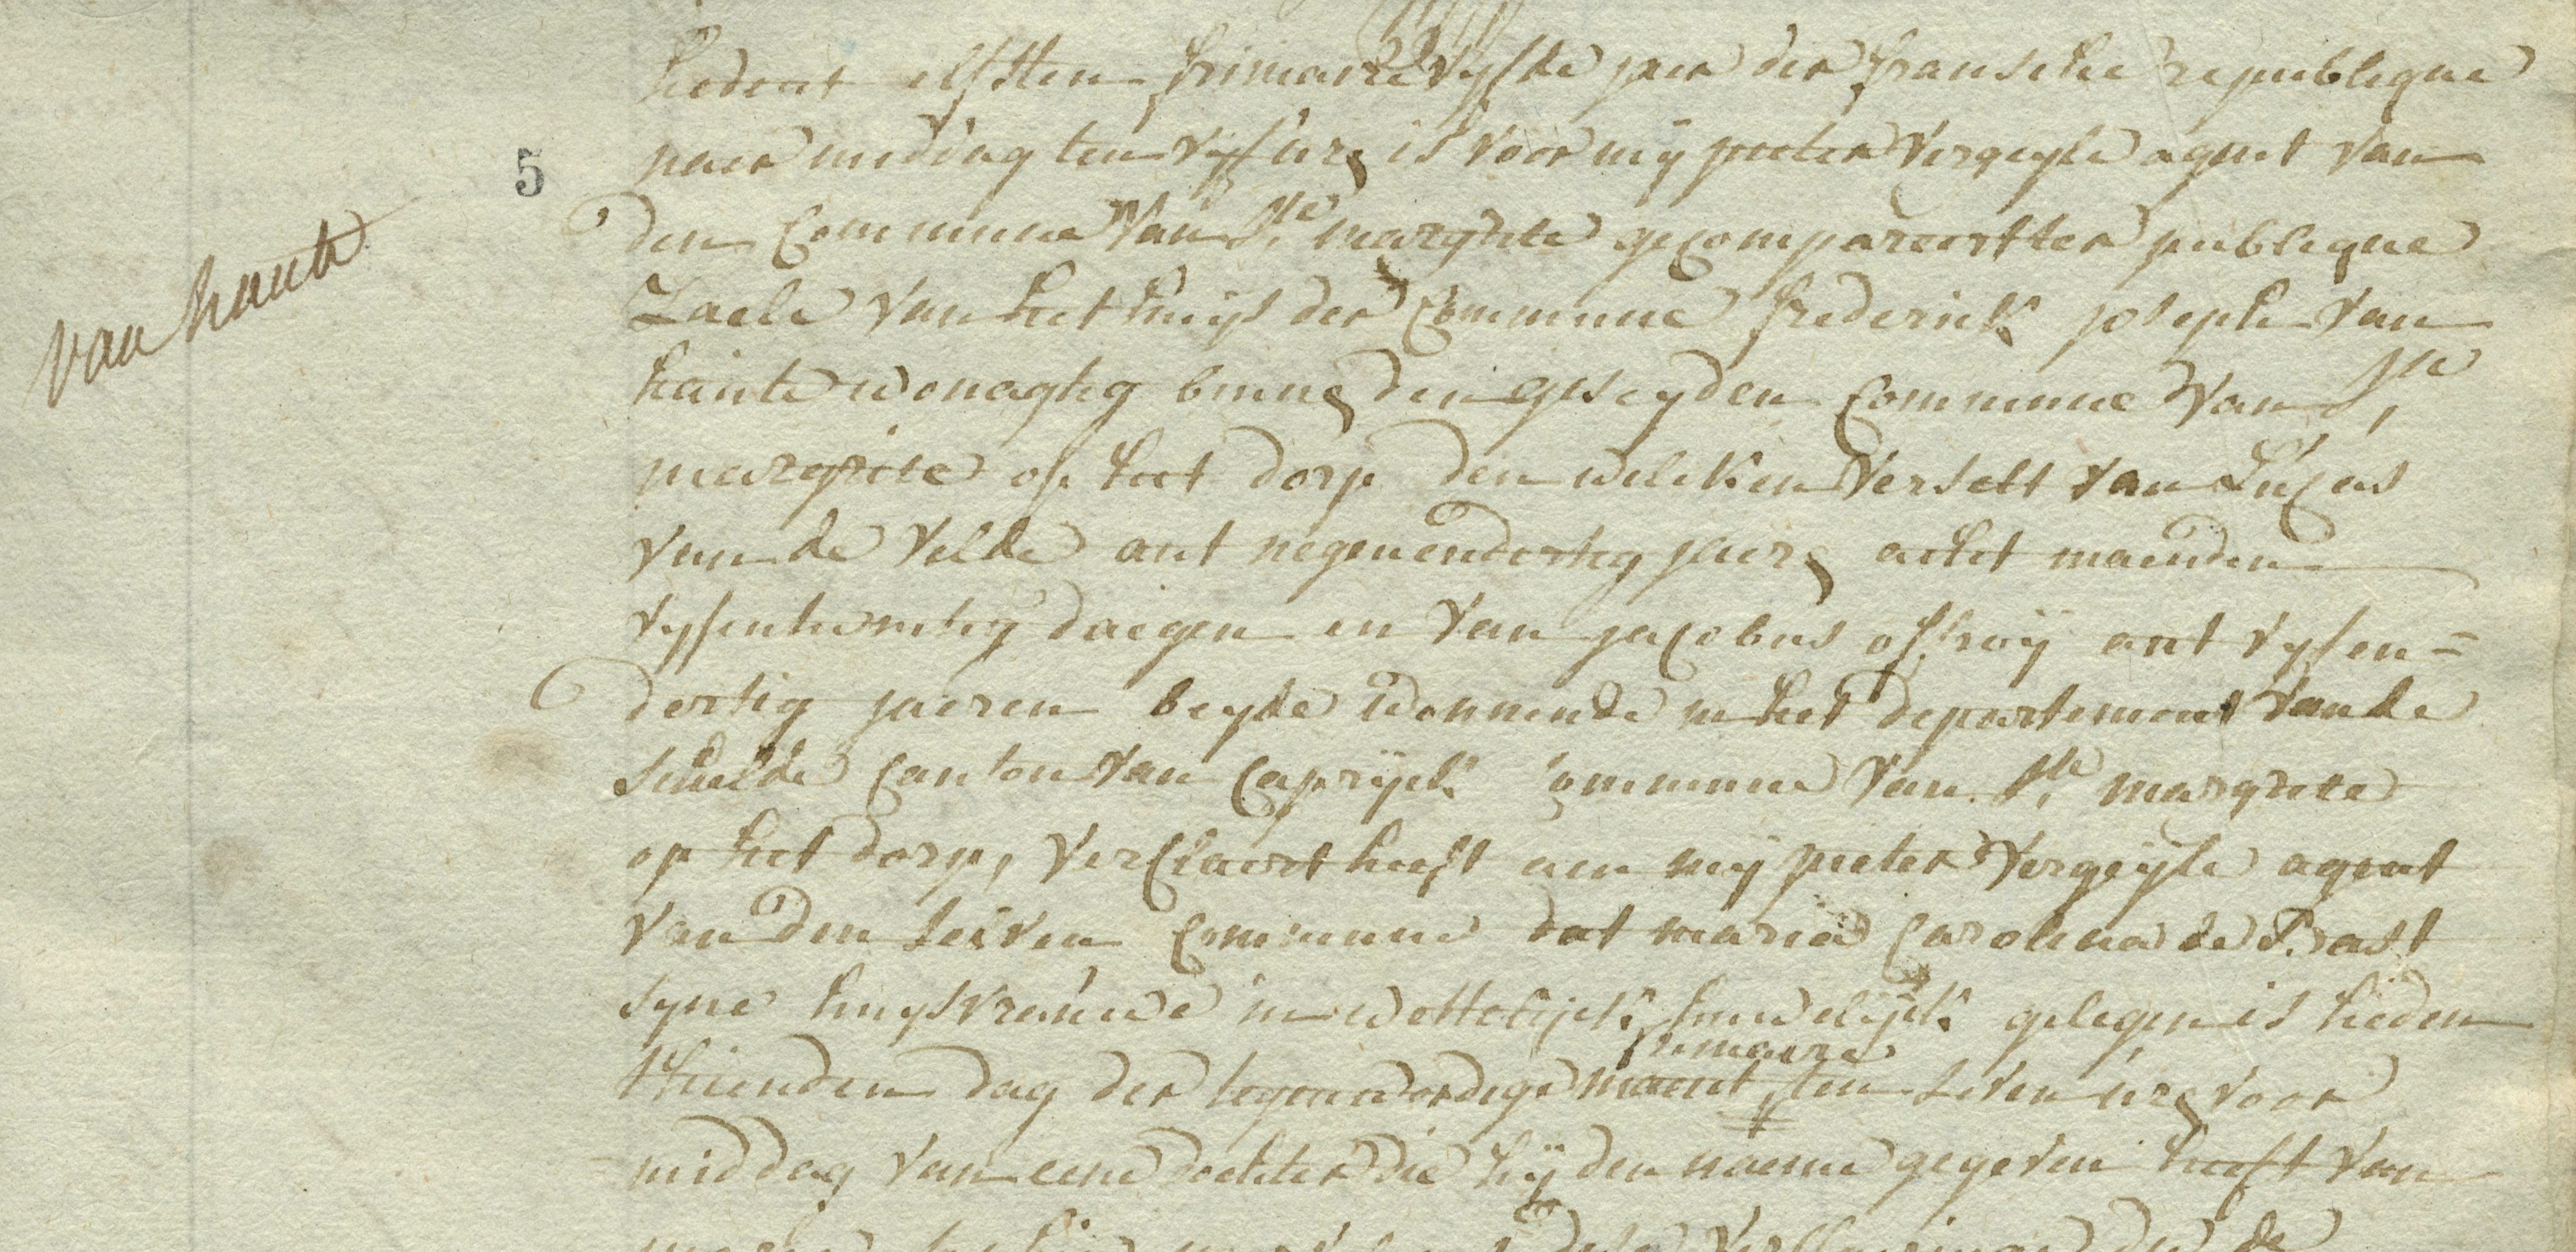 hedent elfsten frimaire vyfde jaer der fransche republique
5
naer middag ten vyf urs is voor mij pieter Vergeyle agent van
den Commune van Ste margriete gecompareert ter publique
Zaele van het huijs der Commune frederick joseph van
van haute
haute wonagtig binns den geseyden Commune van Ste
margriete op het dorp den welcken verselt van Lucas
van de Velde out negenendertig jaers acht maenden
vyfentwintig daegen en van jacobus offroij out vyfen=
dertig jaeren beyde wonnende in het departement van de
schelde Canton van Capryck Commune van Ste margriete
op het dorp, verclaert heeft aen mij pieter Vergeyle agent
van den selven Commune dat maria Carolina de Prast
syne huysvrauwe in wettelijck huwelijck gelegen is heden
frimaire
thienden dag der tegenwordige maent ten seven urs voor
middag van eene dochter die hij den naeme gegeven heeft van